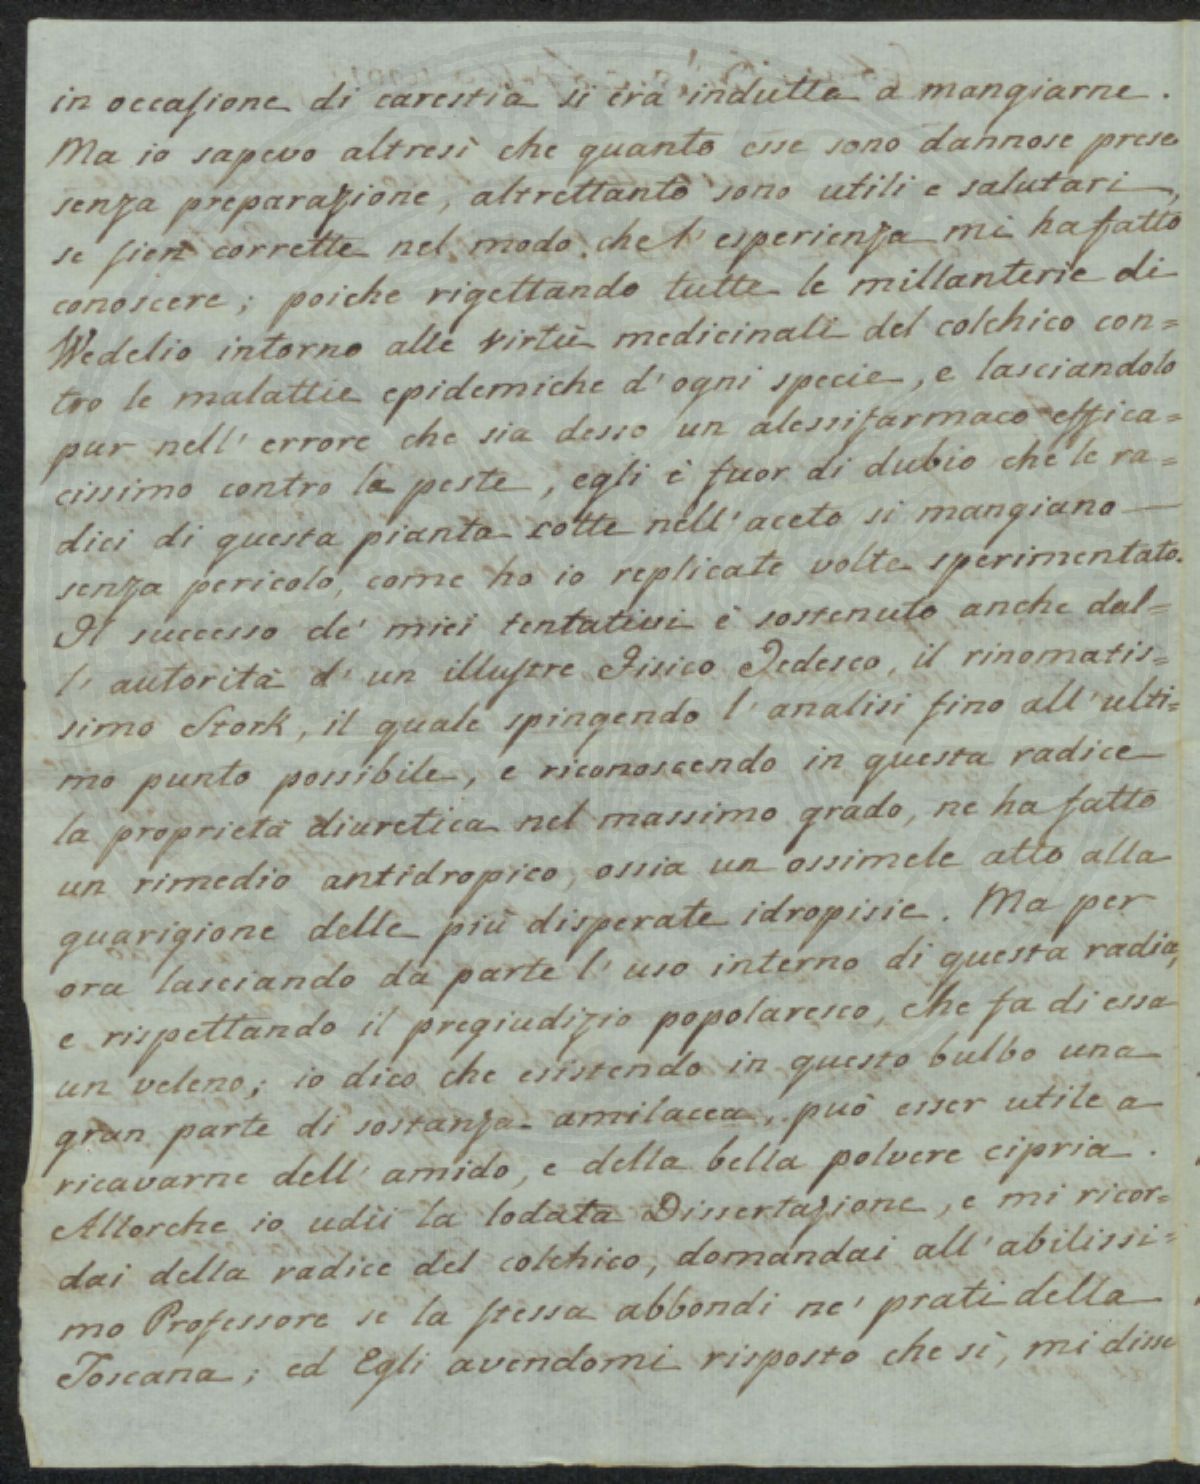 in occasione di carestia si era indutta a mangiarne.
Ma io sapevo altresì che quanto esse sono dannose prese
senza preparazione, altrettanto sono utili e salutari,
se sien corrette nel modo che l'esperienza mi ha fatto
conoscere; poiche rigettando tutte le millanterie di
Wedelio intorno alle virtù medicinali del colchico con=
tro le malattie epidemiche d'ogni specie, e lasciandolo
pur nell'errore che sia desso un alessifarmaco effica=
cissimo contro la peste, egli è fuor di dubio che le ra=
dici di questa pianta cotte nell'aceto si mangiano —
senza pericolo, come ho io replicate volte sperimentato.
Il successo de' miei tentativi è sostenuto anche dal=
l'autorità d'un illustre Fisico Tedesco, il rinomatis=
simo Stork, il quale spingendo l'analisi fino all'ulti=
mo punto possibile, e riconoscendo in questa radice
la proprietà diuretica nel massimo grado, ne ha fatto
un rimedio antidropico, ossia un ossimele atto alla
guarigione delle più disperate idropisie. Ma per
ora lasciando da parte l'uso interno di questa radice,
e rispettando il pregiudizio popolaresco, che fa di essa
un veleno; io dico che esistendo in questo bulbo una
gran parte di sostanza amilacea, può esser utile a
ricavarne dell'amido, e della bella polvere cipria.
Allorche io udii la lodata Dissertazione, e mi ricor=
dai della radice del colchico, domandai all'abilissi=
mo Professore se la stessa abbondi ne' prati della
Toscana; ed Egli avendomi risposto che sì, mi disse